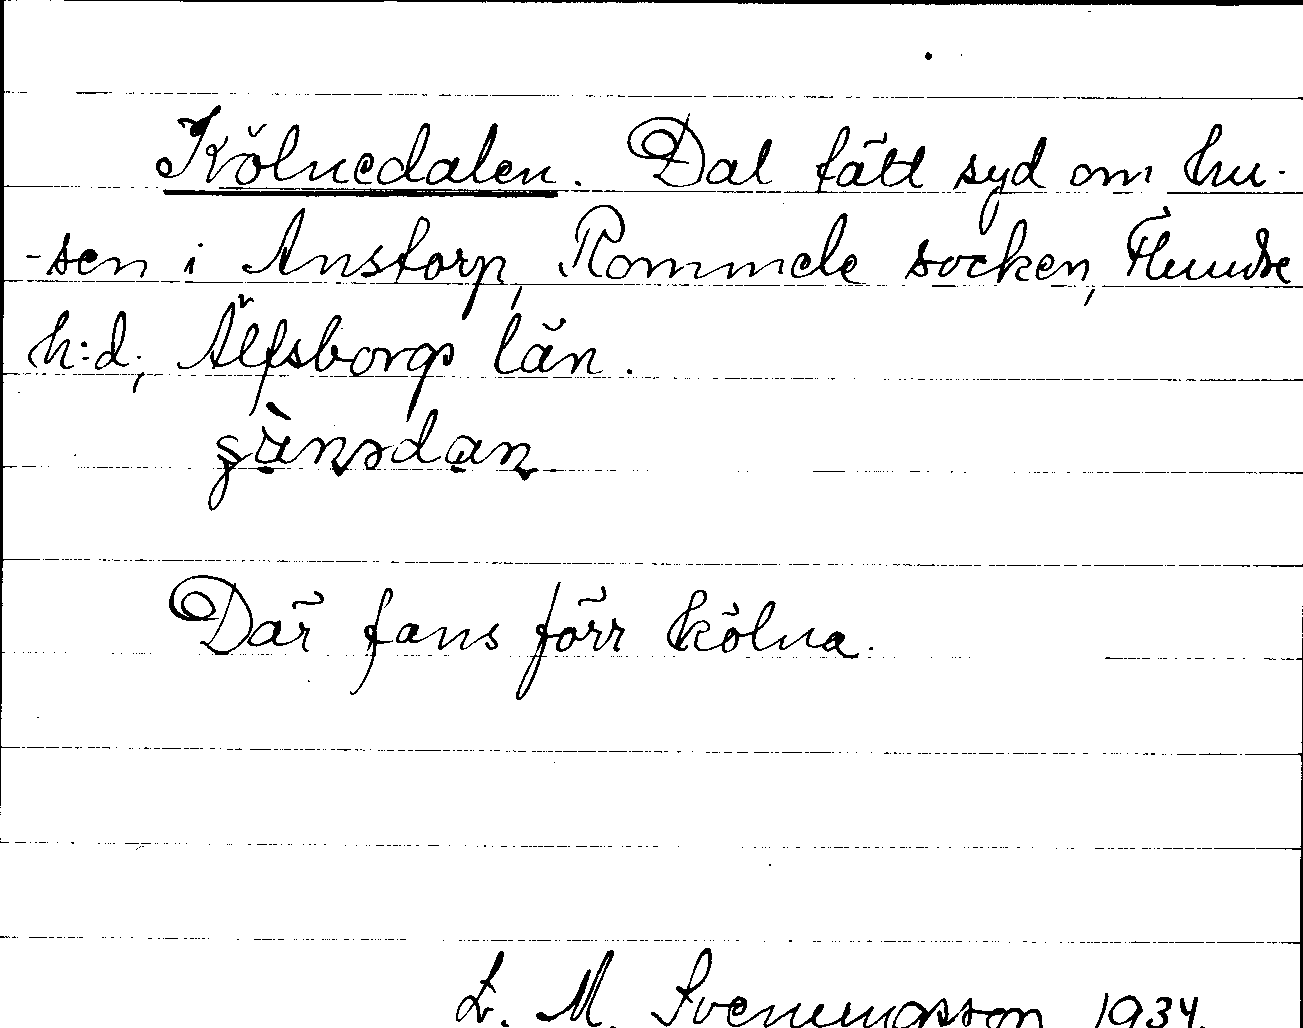 Kölnedalen. Dal tätt syd om hu-
-sen i Anstorp, Rommele socken, Flundre
h:d, Älfsborgs län.
Där fans förr kölna.
L. M. Svenungsson 1934.